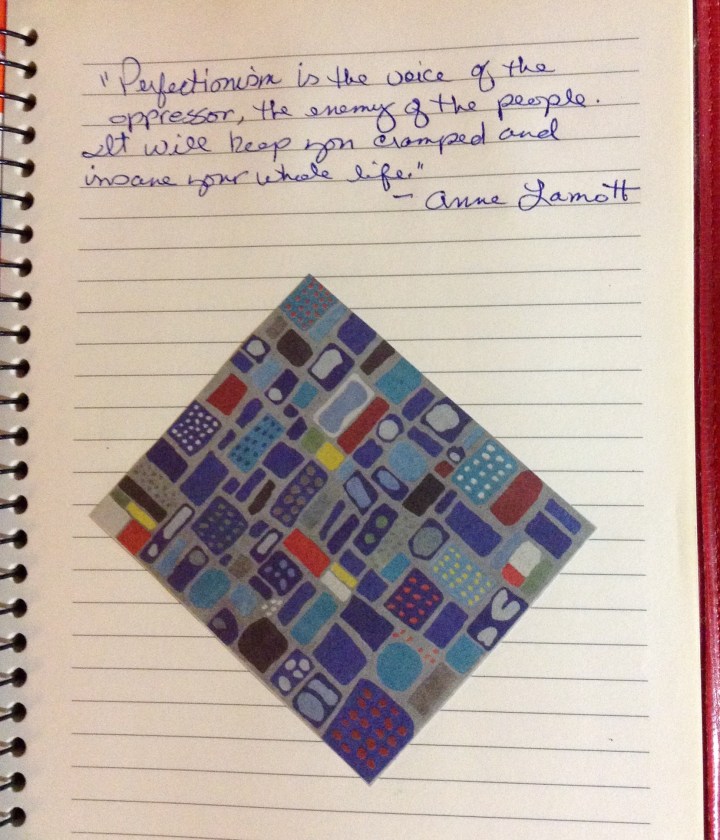 "Perfectionism is the voice of the
oppressor, the enemy of the people.
It will keep you cramped and
insane your whole life."
- Anne Lamott